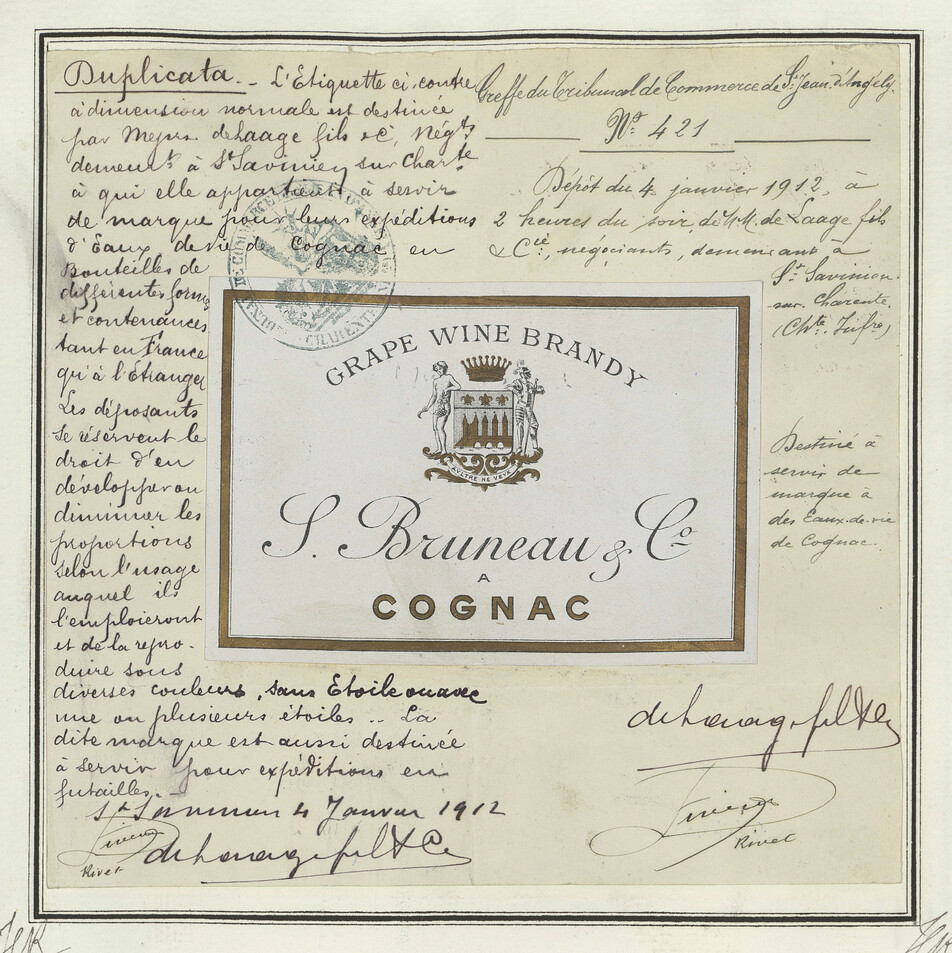 Duplicata. - L'Etiquette ci-contre
à dimension normale est destinée
par Messrs de Laage fils & Cie, Négts
demeurt à St Savinien sur Charte
à qui elle appartient à servir
de marque pour leurs expéditions
d'Eaux de vie de Cognac en
Bouteilles de
différentes formes
et contenances
tant en France
qu'à l'Etranger
Les déposants
se réservent le
droit d'en
développer ou
diminuer les
proportions
selon l'usage
auquel ils
l'emploieront
et de la repro-
duire sous
diverses couleurs, sans Etoile ou avec
une ou plusieurs étoiles .. La
dite marque est aussi destinée
à servir pour expéditions en
futailles. -
St Savinien 4 Janvier 1912
de Laage fils & Cie
Rivet
Greffe du Tribunal de Commerce de St Jean d'Angély.
No 421
Dépôt du 4 janvier 1912, à
2 heures du soir, de MM. de Laage fils
& Cie, négociants, demeurant à
St Savinien-
sur-Charente
(Chte Infre)
Destiné à
servir de
marque à
des Eaux-de-vie
de Cognac.
GRAPE WINE BRANDY
S. Bruneau & Co
A
COGNAC
de Laage fils & Cie
Rivet